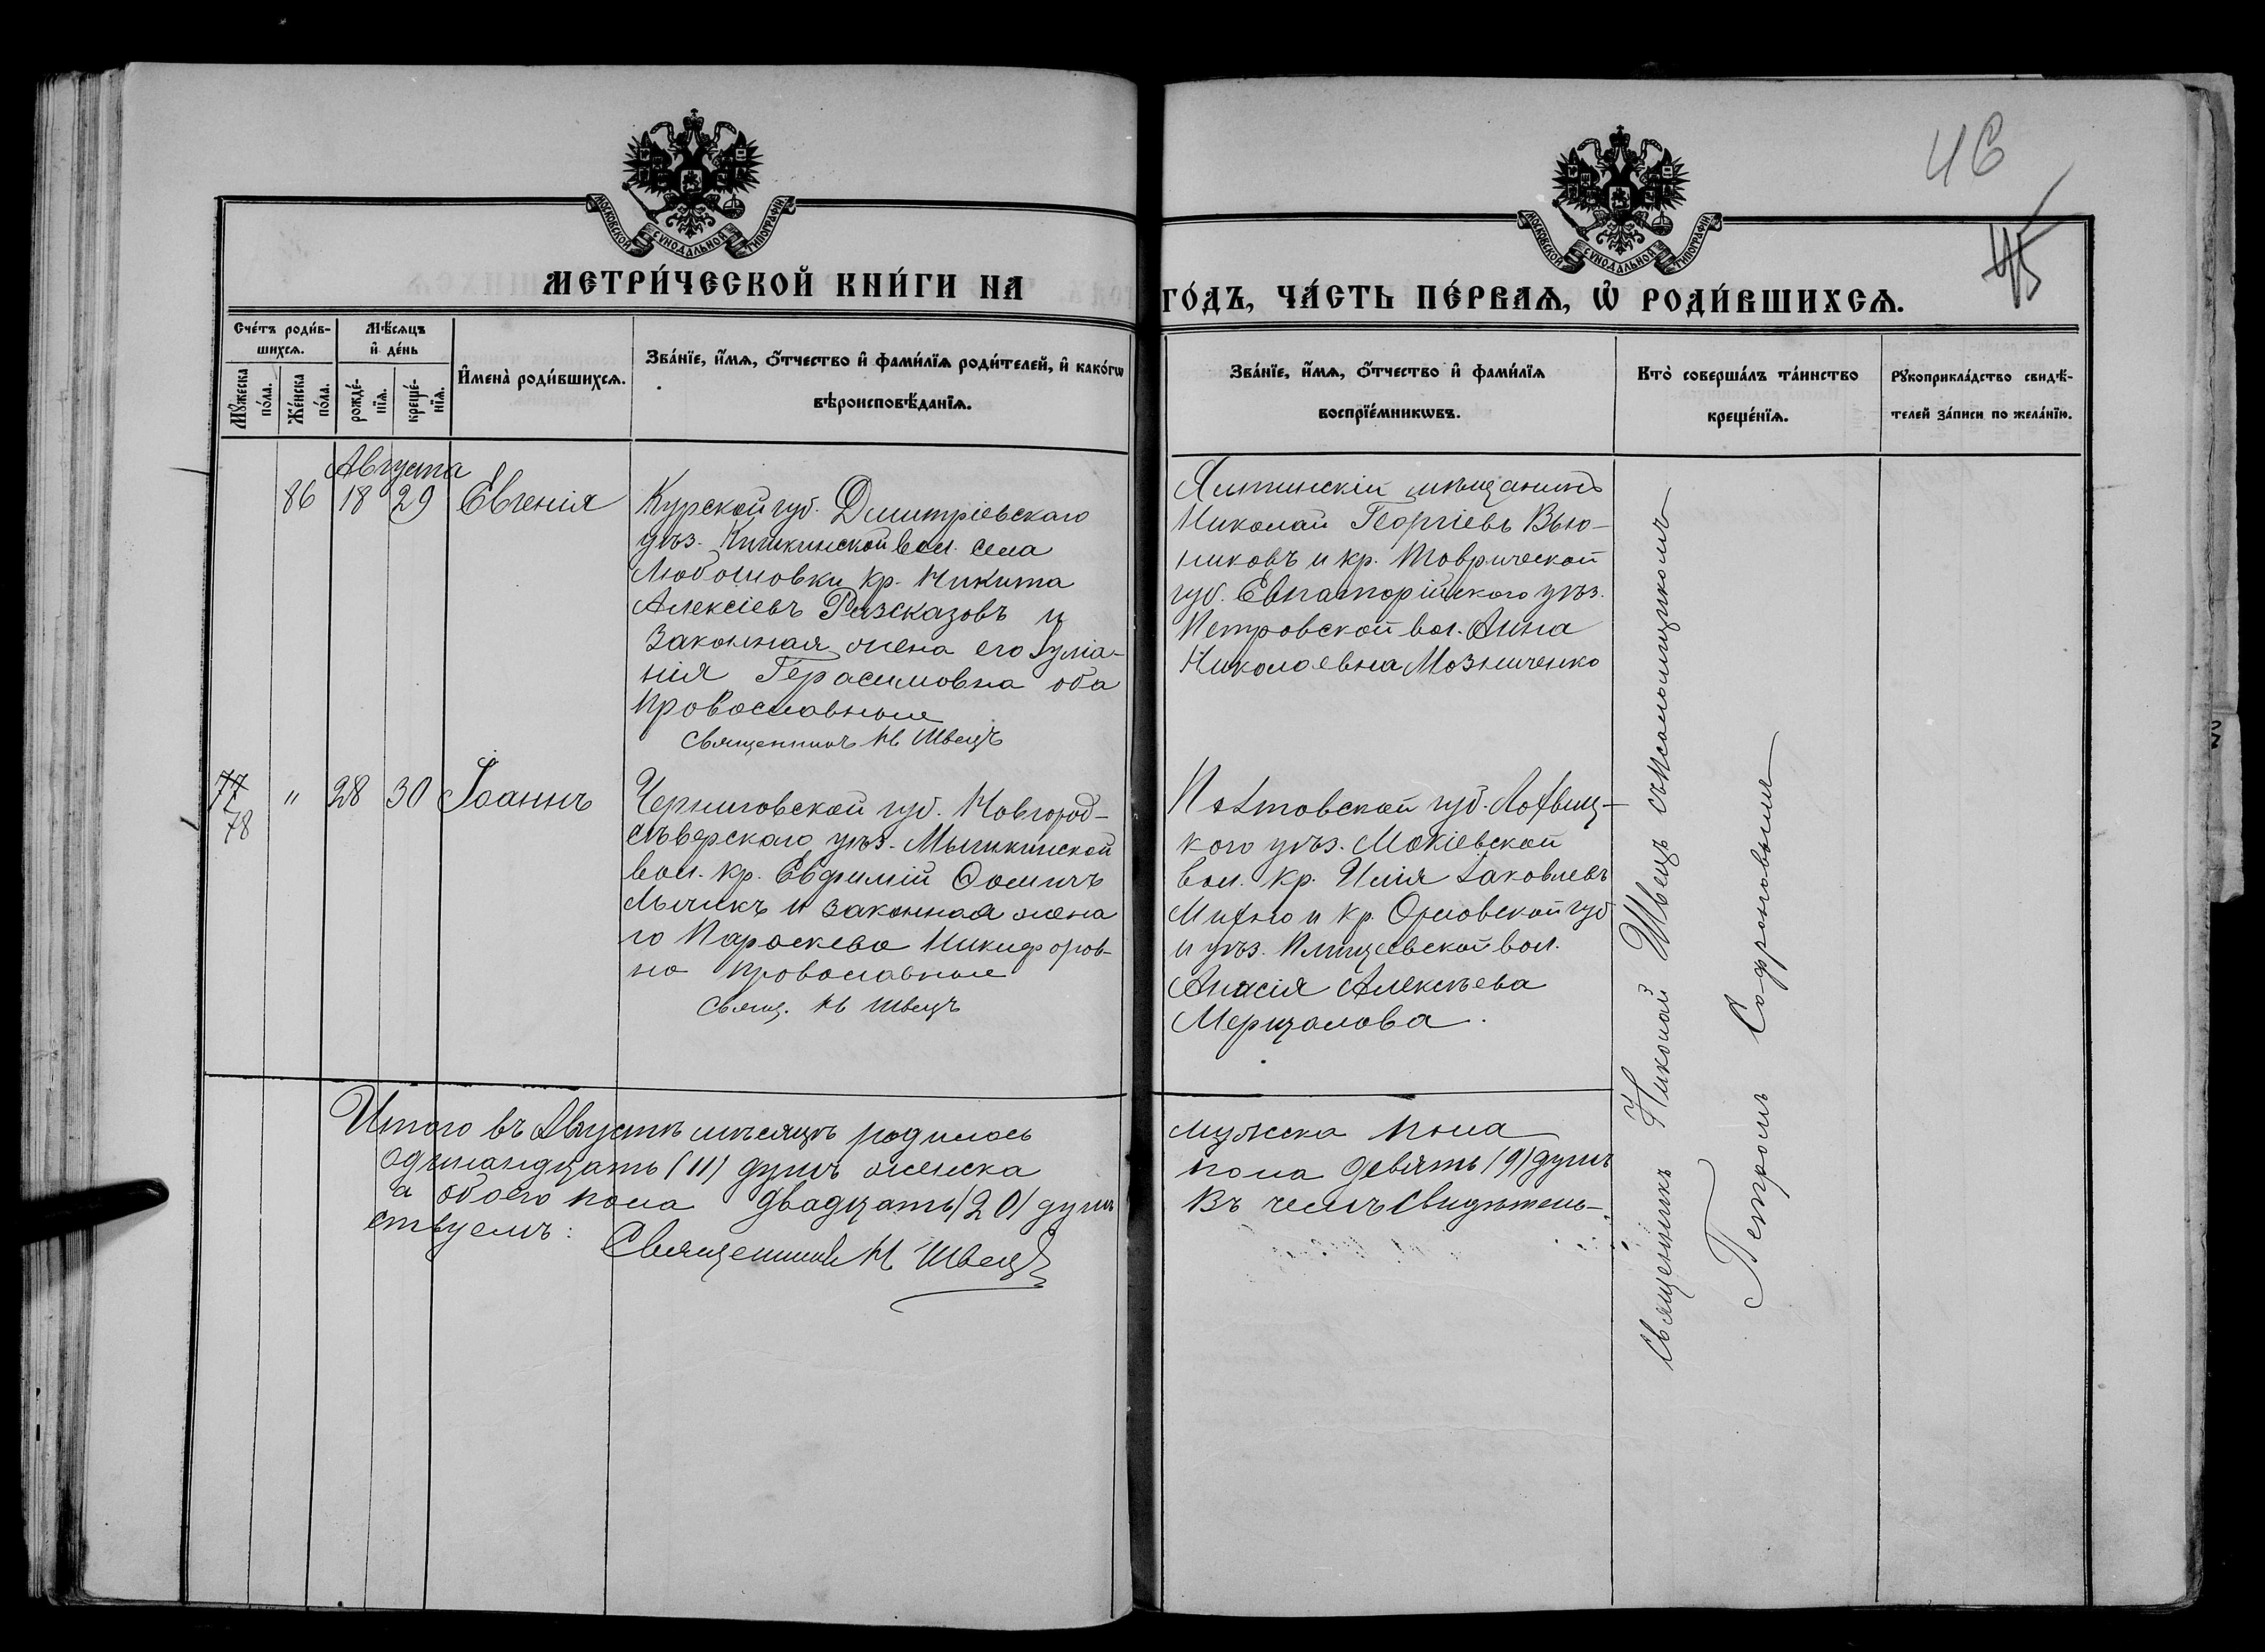 46
45
МОСКОВСКОЙ СѴНОДАЛЬНОЙ ТИПОГРАФІИ
МЕТРИ́ЧЕСКОЙ КНИ́ГИ НА
МОСКОВСКОЙ СѴНОДАЛЬНОЙ ТИПОГРАФІИ
ГО́ДЪ, ЧА́СТЬ ПЕ́РВАѦ, Ѡ҆ РОДИ́ВШИХСѦ.
Сче́тъ роди́в-
шихсѧ.
Мꙋжеска по́ла.
Же́нска по́ла.
Мѣ́сѧцъ
и҆ де́нь
рожде́-
нїѧ.
креще́-
нїѧ.
И҆мена̀ роди́вшихсѧ.
Зва́нїе, и҆́мѧ, ѻ҆́тчество и҆ фами́лїѧ роди́телей, и҆ како́гѡ
вѣроисповѣ́данїѧ.
Зва́нїе, и҆́мѧ, ѻ҆́тчество и҆ фами́лїѧ
воспрїе́мникѡвъ.
Кто̀ соверша́лъ та́инство
креще́нїѧ.
Рꙋкоприкла́дство свидѣ́-
телей за́писи по жела́нїю.
Августа
86 18 29 Евгенія
Курской губ. Дмитріевскаго
уѣз. вол. села
кр. Никита
Алексіевъ Разсказовъ и
законная жена его Іуліа-
нія Герасимовна оба
православные
Священникъ Н Швецъ
Ялтинскій мѣщанинъ
Николай Георгіевъ Вью-
никовъ и кр. Таврической
губ. Евпаторійского уѣз.
Петровской вол. Анна
Николаевна Мозниченко
77
78 " 28 30 Іоаннъ
Черниговской губ. Новгород-
сѣверскаго уѣз. вол. кр. Евфимій Ѳомичъ
и законная жена
го Параскева Никифоров-
на православные
Свящ. Н Швецъ
Полтовской губ. Лохвиц-
кого уѣз. Мокіевской
вол. кр. Илія Іаковлевъ
Михно и кр. Орловской губ
и уѣз. вол.
Алексѣева
Мерцалова.
Священникъ Николай Швецъ съ псаломщикомъ
Петромъ Софроновымъ
Итого въ Августѣ мѣсяцѣ родилось
мужска пола
одиннандцать (11) душъ женска
пола девять (9) душъ
а обоего пола двадцать (20) душъ
Въ чемъ свидѣтель-
ствуемъ:
Священникъ Н Швецъ